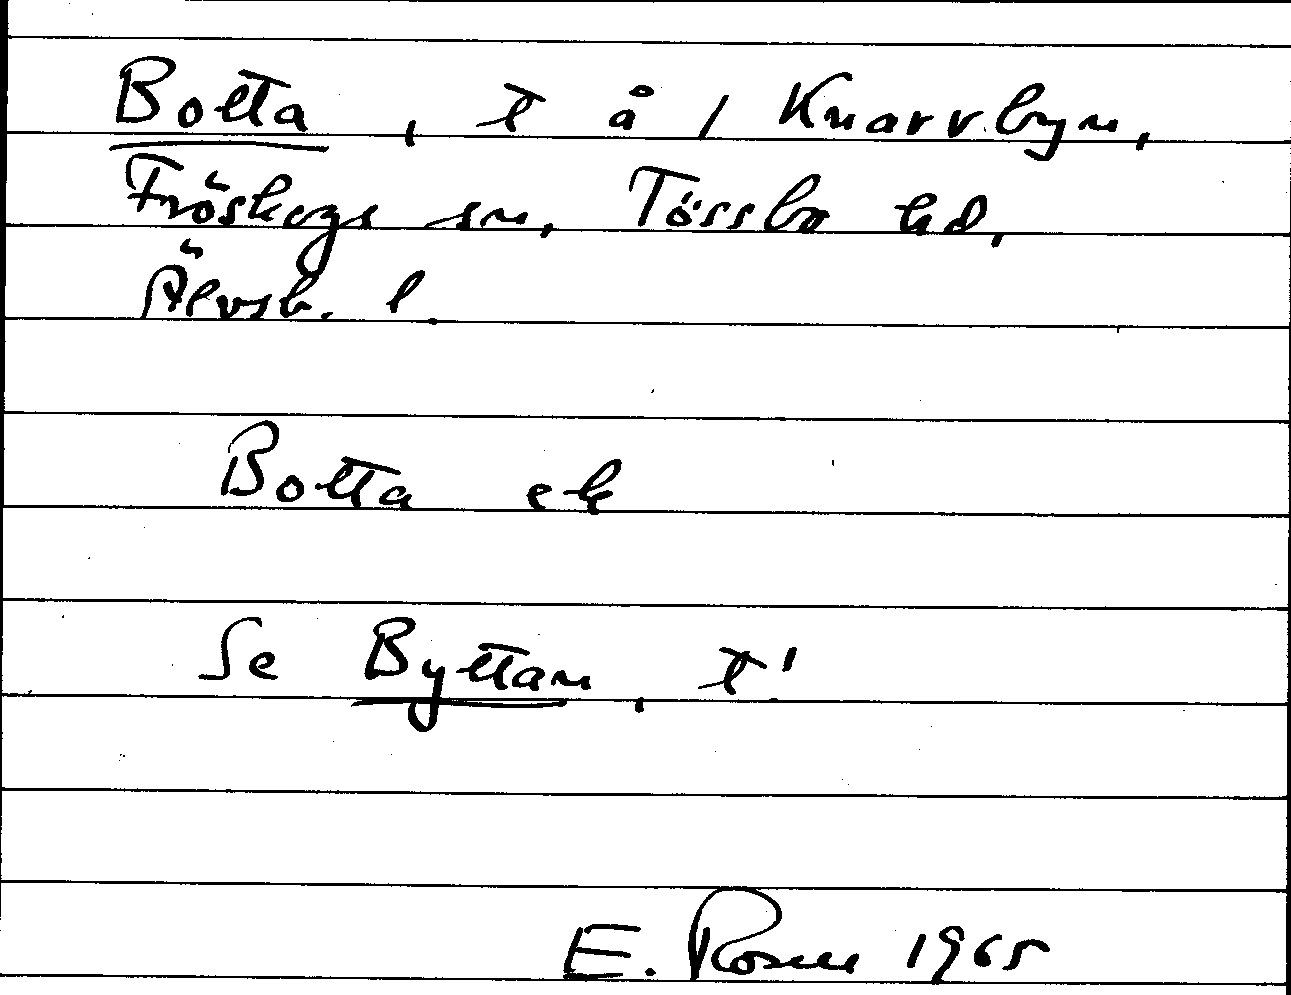 Botta, t å 1 Knarrbyn,
Fröskogs sn, Tössbo hd,
Älvsb. l.
Botta ek
Se Byttan, t!
E. Rosen 1965